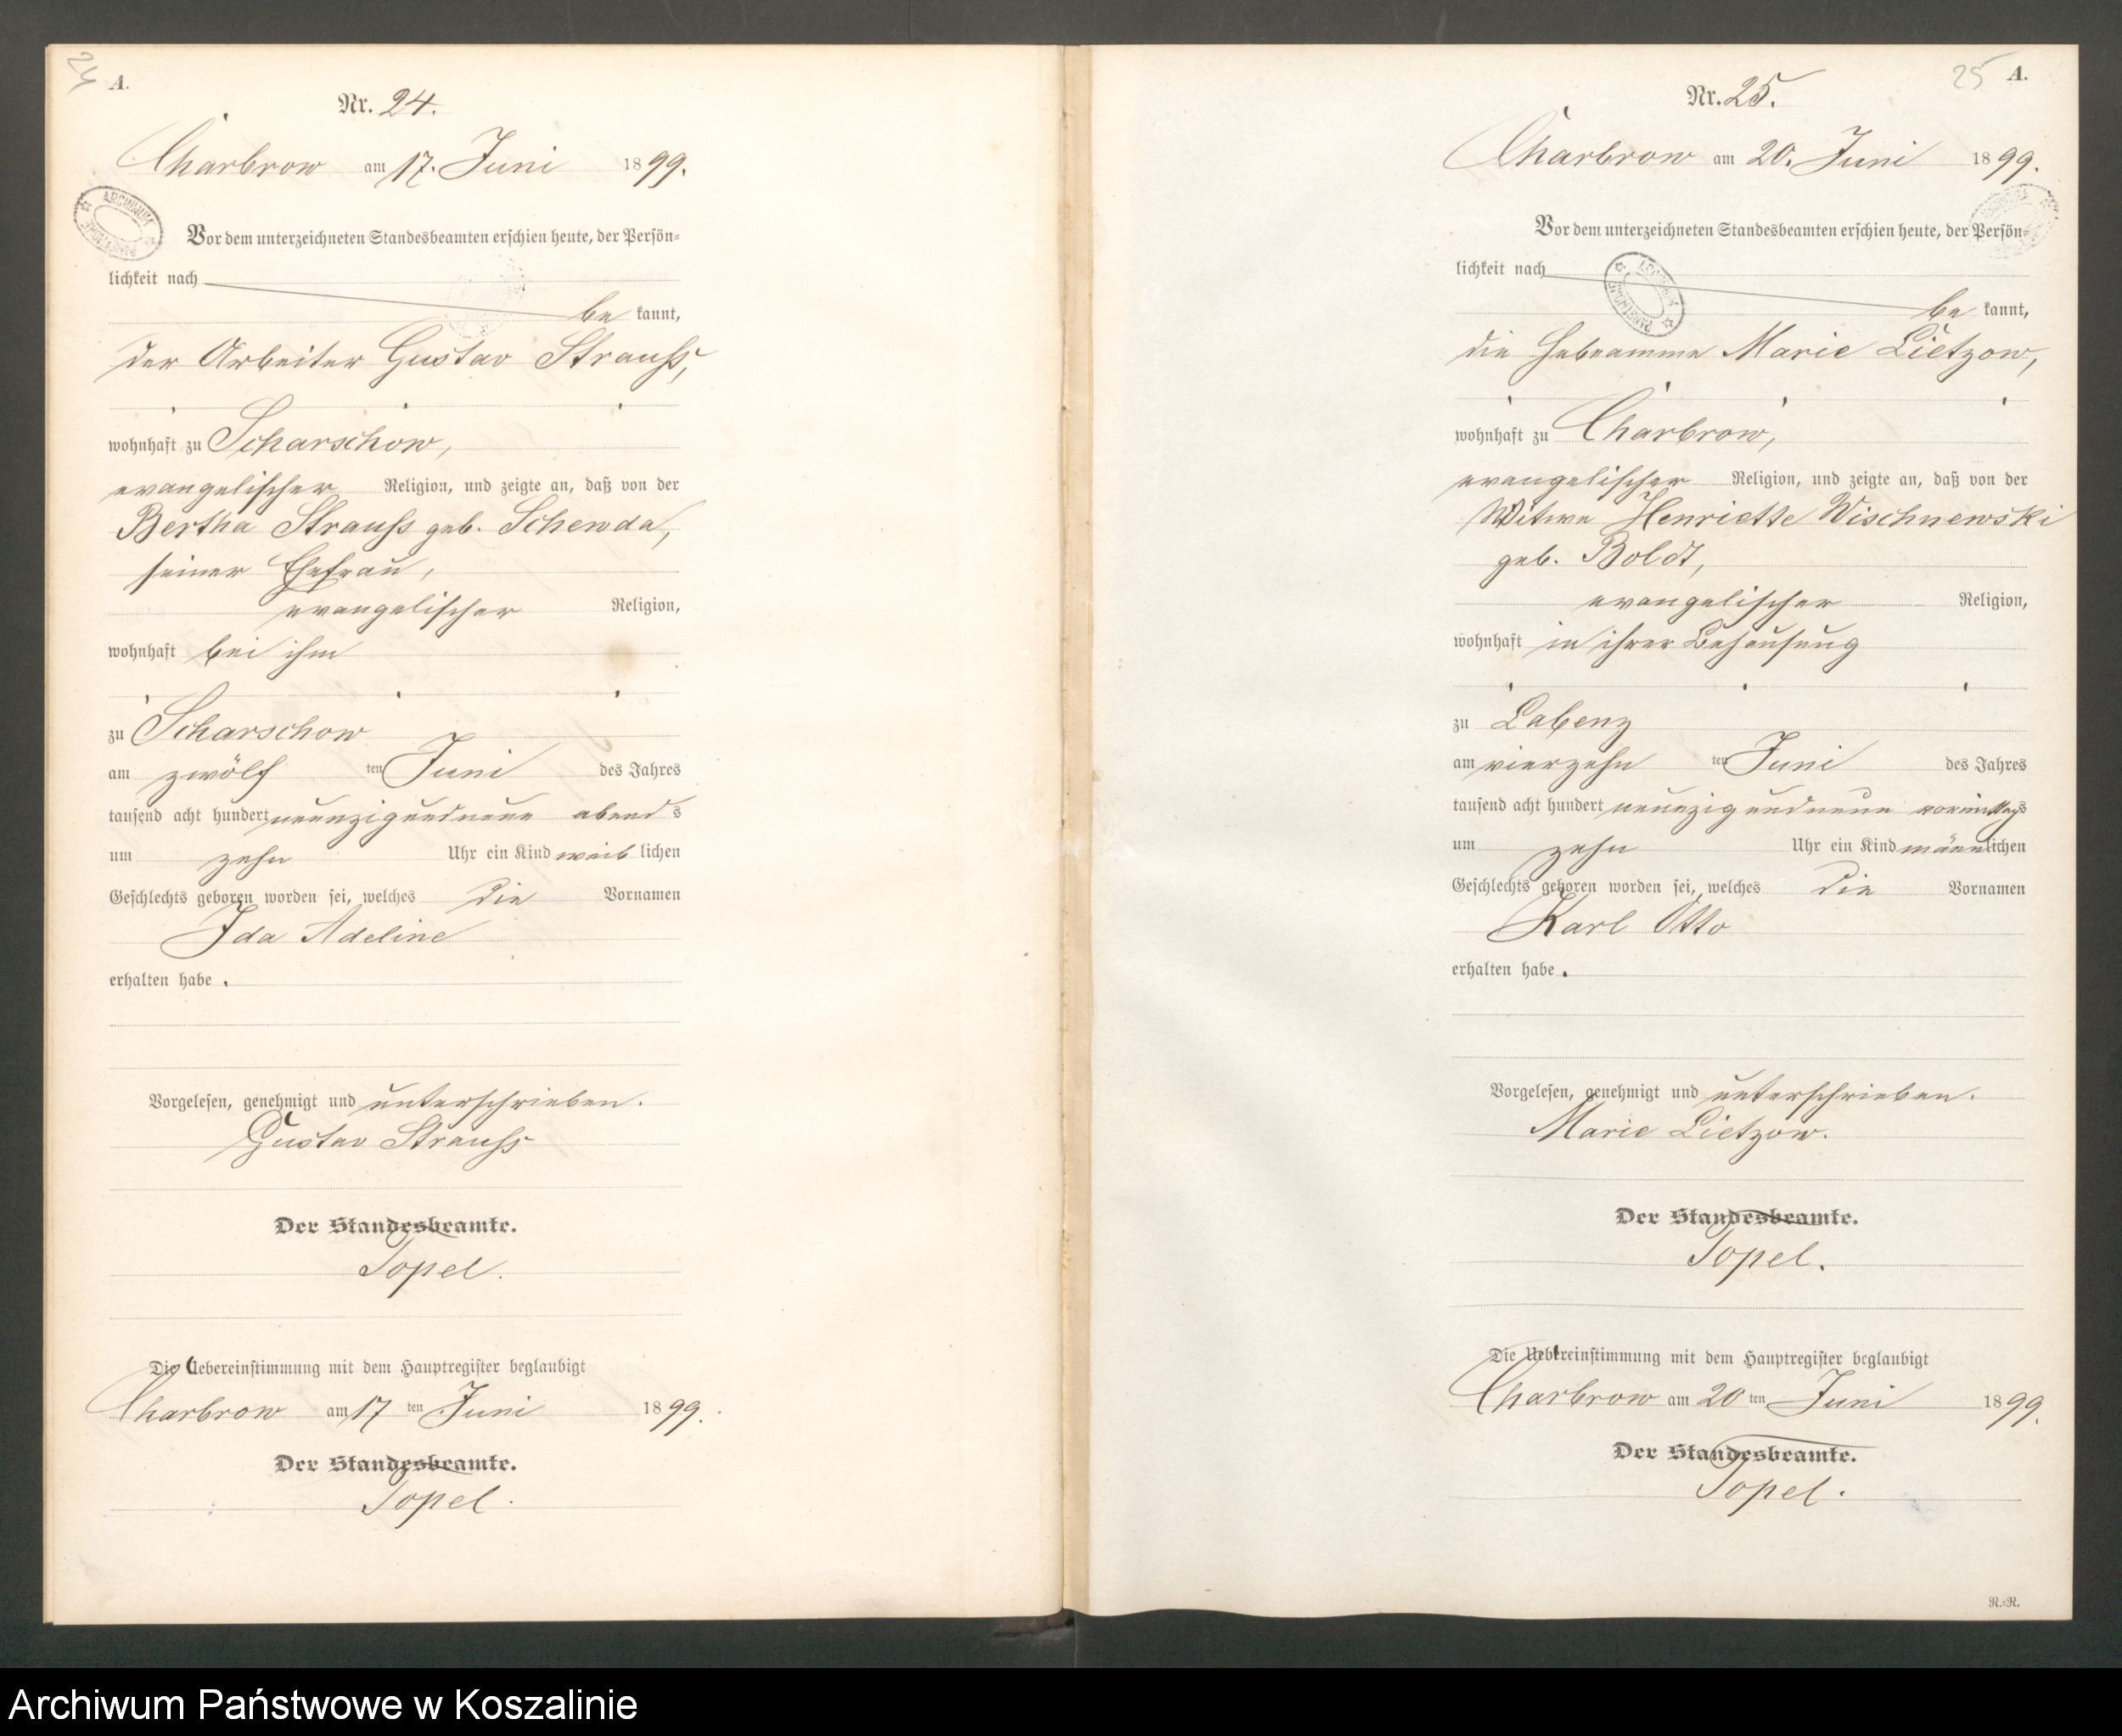 24
A.
Nr. 24.
Charbrow am 17. Juni 1899.
ARCHIWUM PAŃSTWOWE
Vor dem unterzeichneten Standesbeamten erschien heute, der Persön-
lichkeit nach
be kannt,
der Arbeiter Gustav Strauss,
wohnhaft zu Scharschow,
evangelischer Religion, und zeigte an, daß von der
Bertha Strauss geb. Schewda,
seiner Ehefrau,
evangelischer Religion,
wohnhaft bei ihm
zu Scharschow
am zwölf ten Juni des Jahres
tausend acht hundert neunzigundneun abends
um zehn Uhr ein Kind weib lichen
Geschlechts geboren worden sei, welches die Vornamen
Ida Adeline
erhalten habe.
Vorgelesen, genehmigt und unterschrieben.
Gustav Strauss
Der Standesbeamte.
Topel.
Die Uebereinstimmung mit dem Hauptregister beglaubigt
Charbrow am 17 ten Juni 1899.
Der Standesbeamte.
Topel.
25 A.
Nr. 25.
Charbrow am 20. Juni 1899.
Vor dem unterzeichneten Standesbeamten erschien heute, der Persön-
lichkeit nach
ARCHIWUM PAŃSTWOWE
be kannt,
die Hebeamme Marie Lietzow,
wohnhaft zu Charbrow,
evangelischer Religion, und zeigte an, daß von der
Witwe Henriette Wischnewski
geb. Boldt,
evangelischer Religion,
wohnhaft in ihrer Behausung
zu Labenz
am vierzehn ten Juni des Jahres
tausend acht hundert neunzigundneun vormittags
um zehn Uhr ein Kind männlichen
Geschlechts geboren worden sei, welches die Vornamen
Karl Otto
erhalten habe.
Vorgelesen, genehmigt und unterschrieben.
Marie Lietzow.
Der Standesbeamte.
Topel.
Die Uebereinstimmung mit dem Hauptregister beglaubigt
Charbrow am 20 ten Juni 1899.
Der Standesbeamte.
Topel.
R.-R.
Archiwum Państwowe w Koszalinie